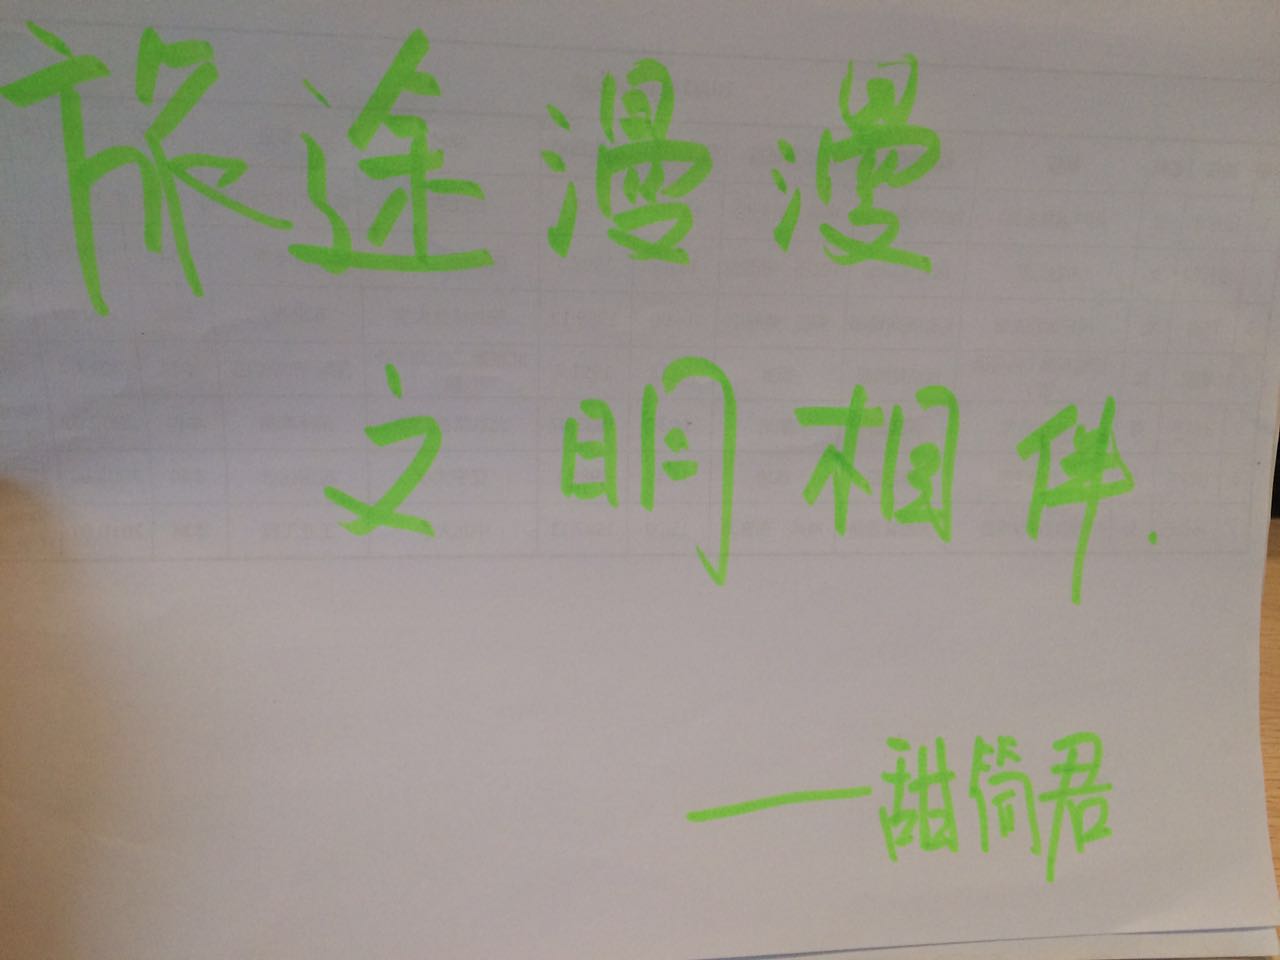 旅途漫漫
文明相伴.
——甜筒君